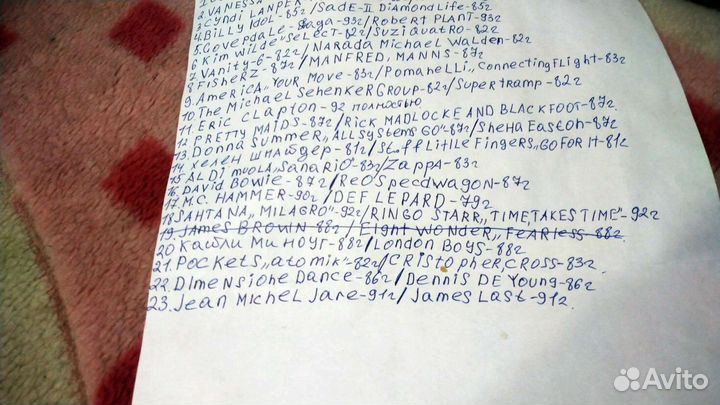 2. VANESSA
3. Cyndi LANPER
4. Billy Idol-85г/Sade-II Diamond Life-85г
5. Coverdale-Saga-93г/Robert PLANT-93г
6. Kim Wilde "SeLect-82г/Suzi QuatRo-82г
7. Vanity-6-82г/Narada Michael Walden-82г
8. FisheRZ-87г/MANFRED, MANNS-87г
9. AmeRicA "YOUR Move-83г/Pomanelli, Connecting Flight-83г
10. The Michael SehenkeR GROUP-82г/SupeR tRamp-82г
11. ERic Clapton-92 полностью
12 PRetty MAIDS-87г/Rick MADLOCKE AND BLACKFOOT-87г
13. Donna SummeR, "ALL Systems GO"-87г/Sheна Easton-87г
14. хелен шнайдер-81г/Stiff Little FingeRs "GO FOR It-81г
15. ALDi muolA "SaNaRiO"-83г/ZAPPA-83г
16. DAVID Bowie-87г/ReO Specdwagon-87г
17. M.C. HAMMER-90г/DEF LEPARD-79г
18. SАНТАNA "MILAGRO"-92г/RINGO STARR "TIME, TAKES TIME"-92г
19. JAMES BROWN-88г/EIGHT WONDER "FEARless-88г.
20 Кайли Миноуг-88г/London Boys-88г
21. POCKETS "atomik"-82г/CRISTopheR, CROSS-83г.
22. Dimensione Dance-86г/Dennis DE Young-86г
23. Jean Michel Jare-91г/James Last-91г
Avito